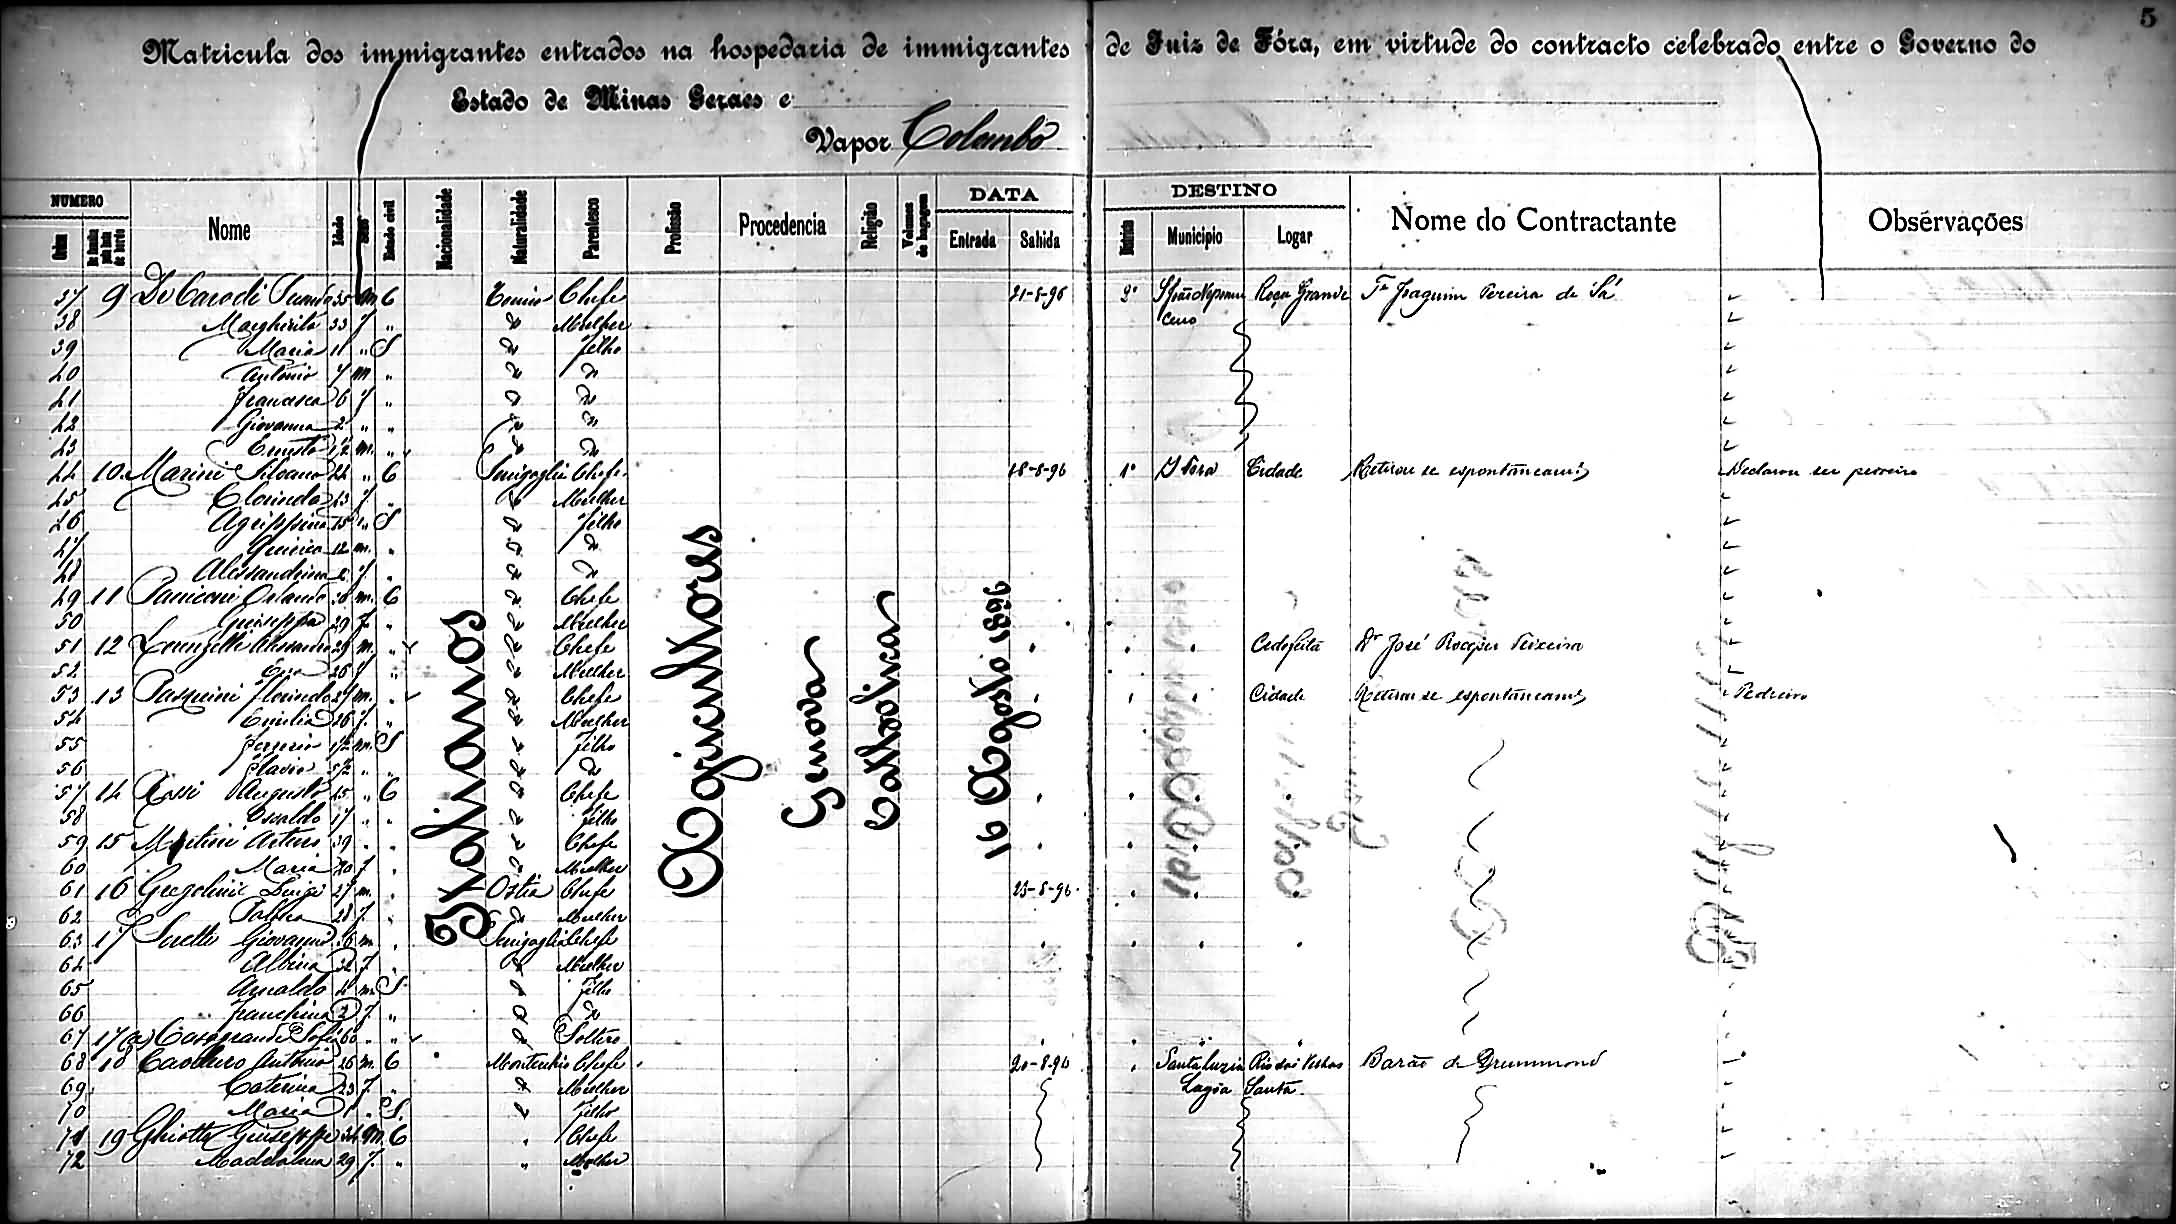 5
Matricula dos immigrantes entrados na hospedaria de immigrantes de Juiz de Fóra, em virtude do contracto celebrado entre o Governo do
Estado de Minas Geraes e
Vapor Colombo
NUMERO DATA DESTINO
Ordem Nome Idade Sexo Estado civil Nacionalidade Naturalidade Parentesco Profissão Procedencia Religião Volumes de bagagem Entrada Sahida Districto Municipio Logar Nome do Contractante Observações
Italianos
Agricultores
Genova
Catholica
16 Agosto 1896
37 9 35 m C Chefe 21-8-96 2º Roça Grande Fr Joaquim Pereira de Sá
38 Margherita 33 f " " Mulher
39 Maria 11 " S " Filho
40 Antonio 7 m " " "
41 Francesca 6 f " " "
42 Giovanna 2 " " " "
43 Ernesto 1/2 m. " " "
44 10 Marini Silvano 44 " C Senigaglia Chefe 18-8-96 1º J Fora Cidade Retirou se espontaneamte Declarou ser pedreiro
45 Clorinda 43 f. " " Mulher
46 Agrippina 15 " S " Filho
47 12 m. " " "
48 Alessandrina 2 f. " " "
49 11 Paniconi Orlando m. C " Chefe
50 Giuseppa 29 f. " " Mulher
51 12 29 m. " " Chefe " " " Cedofeita Dr José Teixeira
52 26 f " " Mulher
53 13 Pasquini Florindo 27 m. " " Chefe " " " Cidade Retirou se espontaneamte Pedreiro
54 Emilia 26 f. " " Mulher
55 m. S " Filho
56 Flavio " " " "
57 14 Rossi Augusto 45 " C " Chefe " " " "
58 Osvaldo 17 " " " Filho
59 15 Arturo 39 " " " Chefe " " "
60 Maria 20 f " " Mulher
61 16 Gregolini Luigi 27 m. " Ostia Chefe 23-8-96 " " "
62 28 f. " " Mulher
63 17 Giovanni 36 m. " Senigaglia Chefe " " " "
64 Albina 32 f " " Mulher
65 Arnaldo 4 m. S " Filho
66 2 f " " "
67 17(a) Casagrande Sofia 60 " " " Solteiro " " " "
68 18 Antonio 26 m. C Chefe 20-8-96 " Santa Luzia Rio das Velhas Barão de Drummond
69 Caterina 23 f. " " Mulher Lagôa Santa
70 Maria 1 " S. " Filho
71 19 Ghiotto Giuseppe 34 m. C " Chefe
72 Maddalena 29 f. " " Mulher